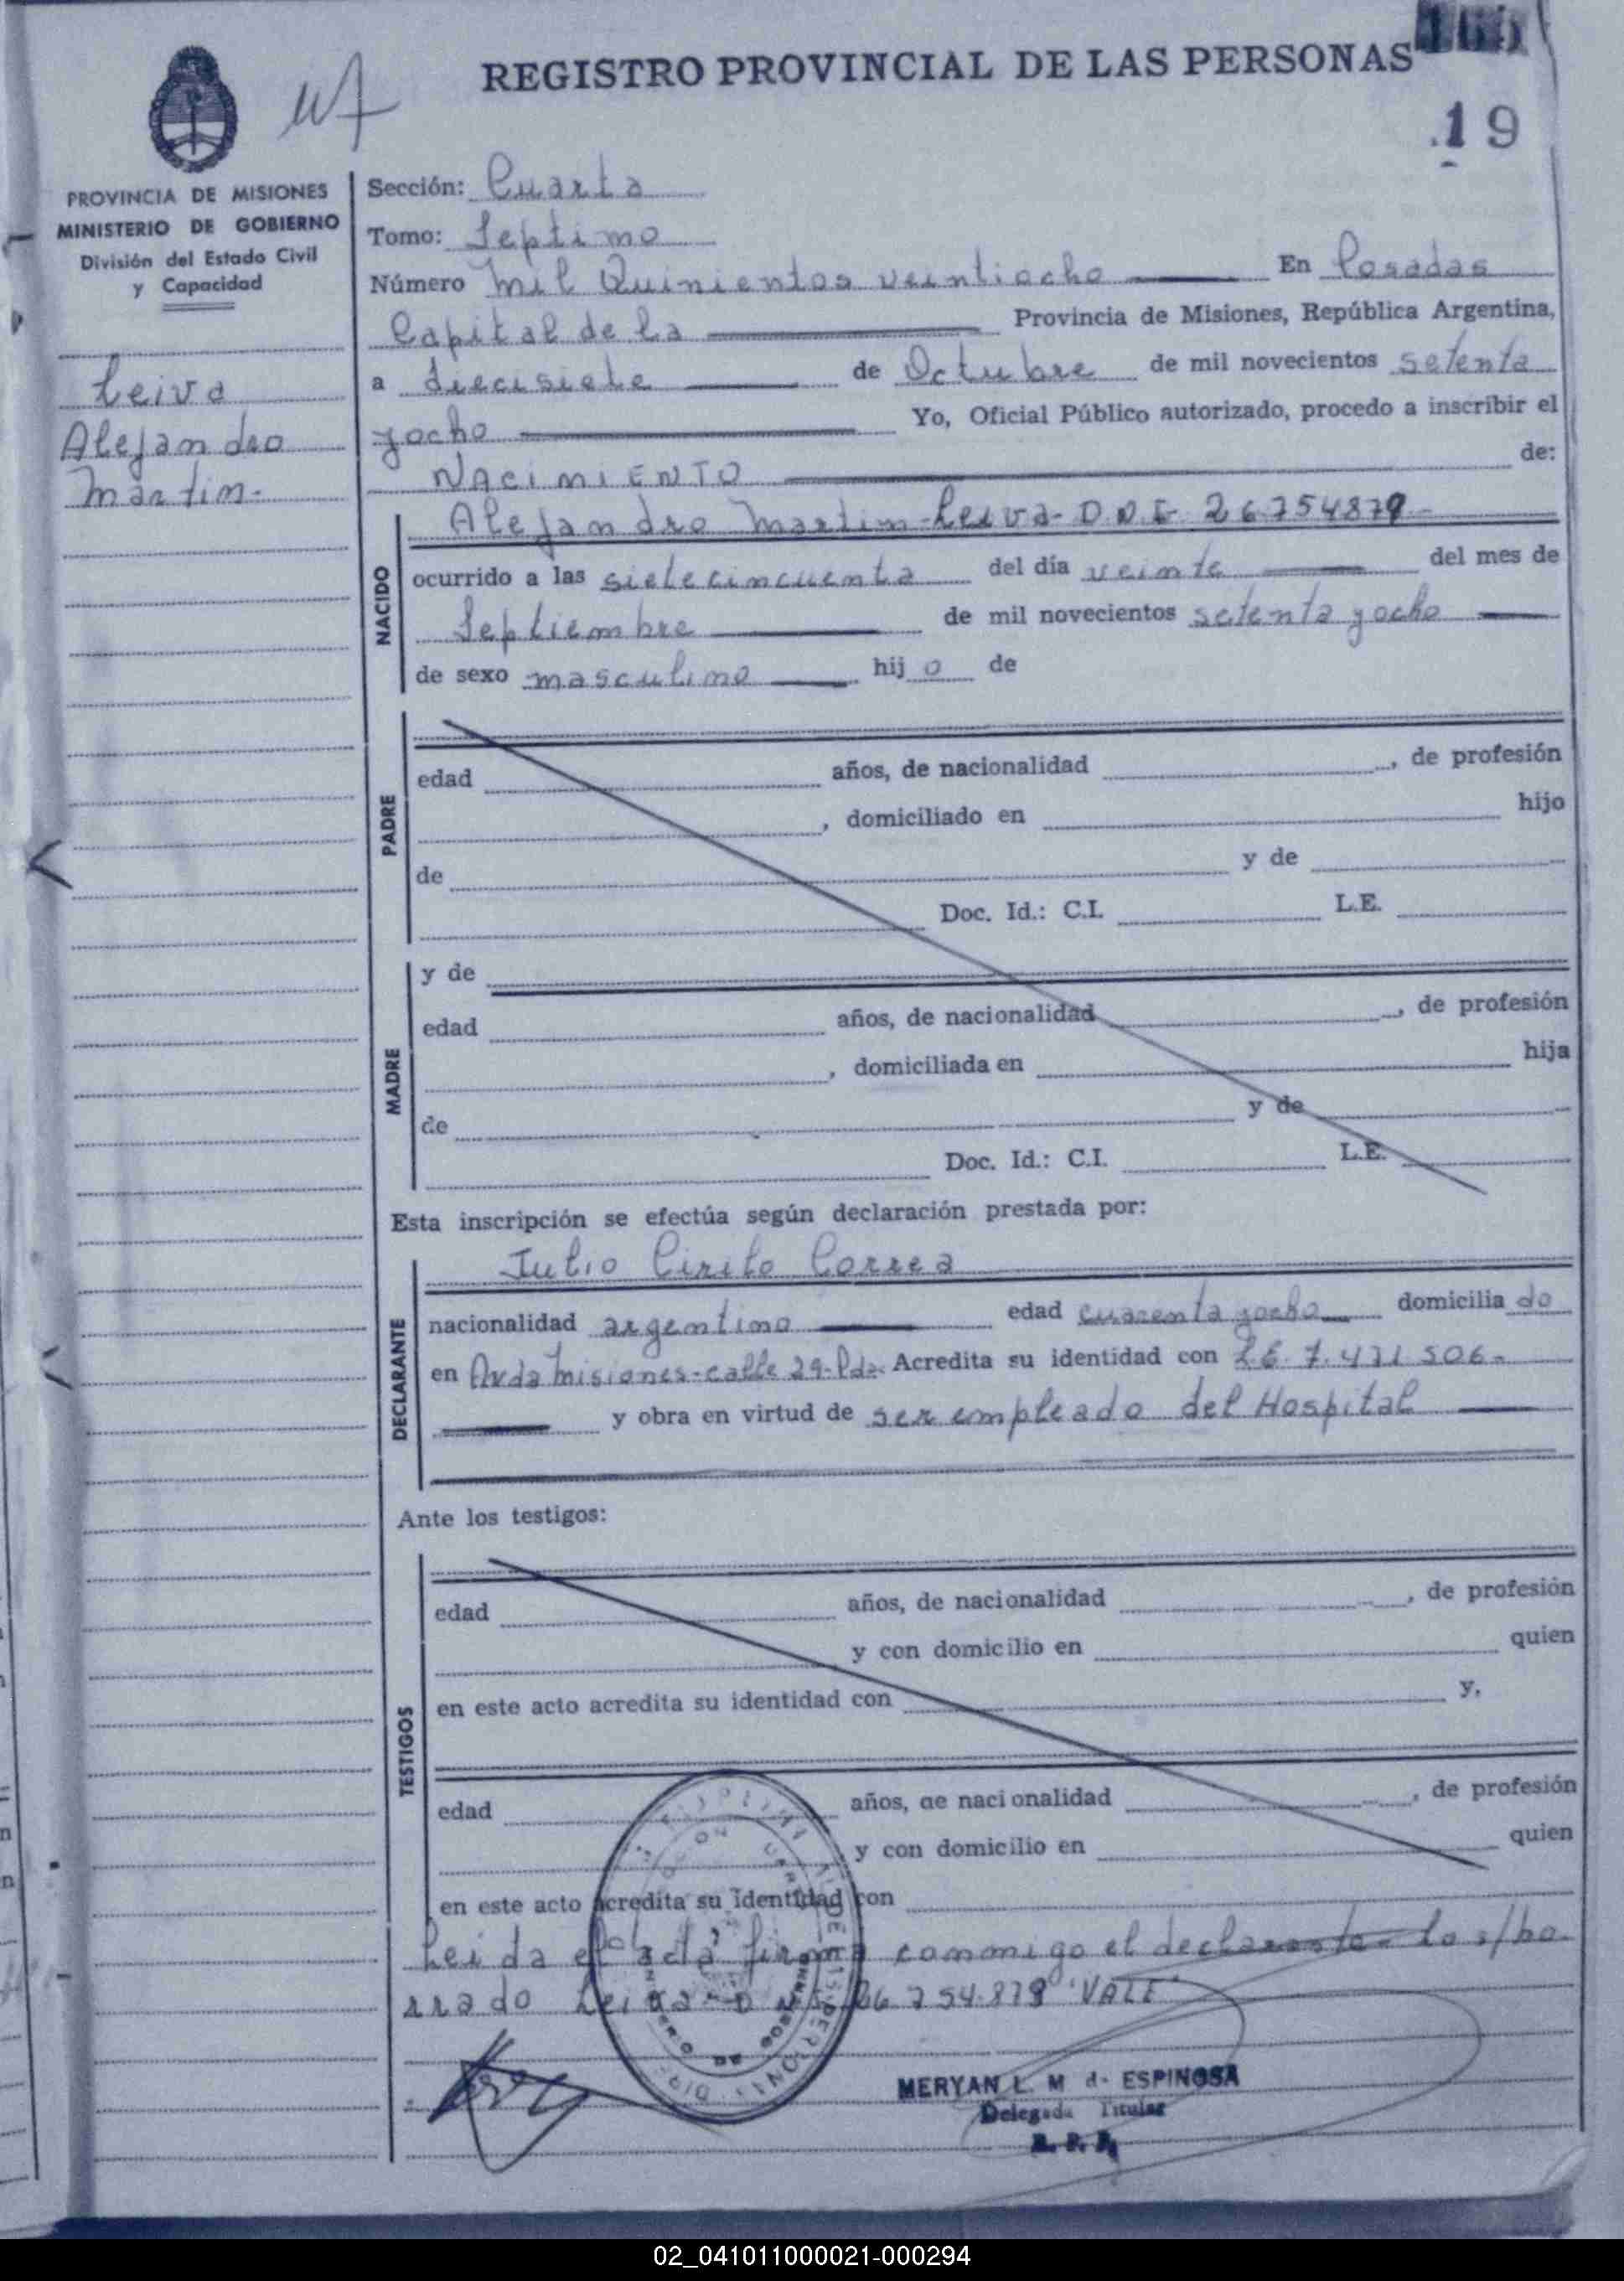 REGISTRO PROVINCIAL DE LAS PERSONAS
19
PROVINCIA DE MISIONES
MINISTERIO DE GOBIERNO
División del Estado Civil
y Capacidad
Leiva
Alejandro
Martin.
Sección: Cuarta
Tomo: Septimo
Número Mil Quinientos veintiocho En Posadas
Capital de la Provincia de Misiones, República Argentina,
a diecisiete de Octubre de mil novecientos setenta
yocho Yo, Oficial Público autorizado, procedo a inscribir el
NACIMIENTO de:
NACIDO
Alejandro Martin Leiva - D.N.I. 26.754.879
ocurrido a las siete cincuenta del día veinte del mes de
Septiembre de mil novecientos setenta y ocho
de sexo masculino hij o de
PADRE
edad años, de nacionalidad , de profesión
, domiciliado en hijo
de y de
Doc. Id.: C.I. L.E.
MADRE
y de
edad años, de nacionalidad , de profesión
, domiciliada en hija
de y de
Doc. Id.: C.I. L.E.
Esta inscripción se efectúa según declaración prestada por:
DECLARANTE
Julio Cirilo Correa
nacionalidad argentino edad cuarenta yocho domicilia do
en Avda Misiones - calle 29 - Pdas Acredita su identidad con L.E. 7.431.506-
y obra en virtud de ser empleado del Hospital
Ante los testigos:
TESTIGOS
edad años, de nacionalidad , de profesión
y con domicilio en quien
en este acto acredita su identidad con y,
edad años, de nacionalidad , de profesión
y con domicilio en quien
en este acto acredita su identidad con
Leida el acta firma conmigo el declarante - lo s/bo
rrado Leiva - D.N.I. 26.754.879 "VALE"
MERYAN L. M d. ESPINOSA
Delegada Titular
R. P. P.
02_041011000021-000294